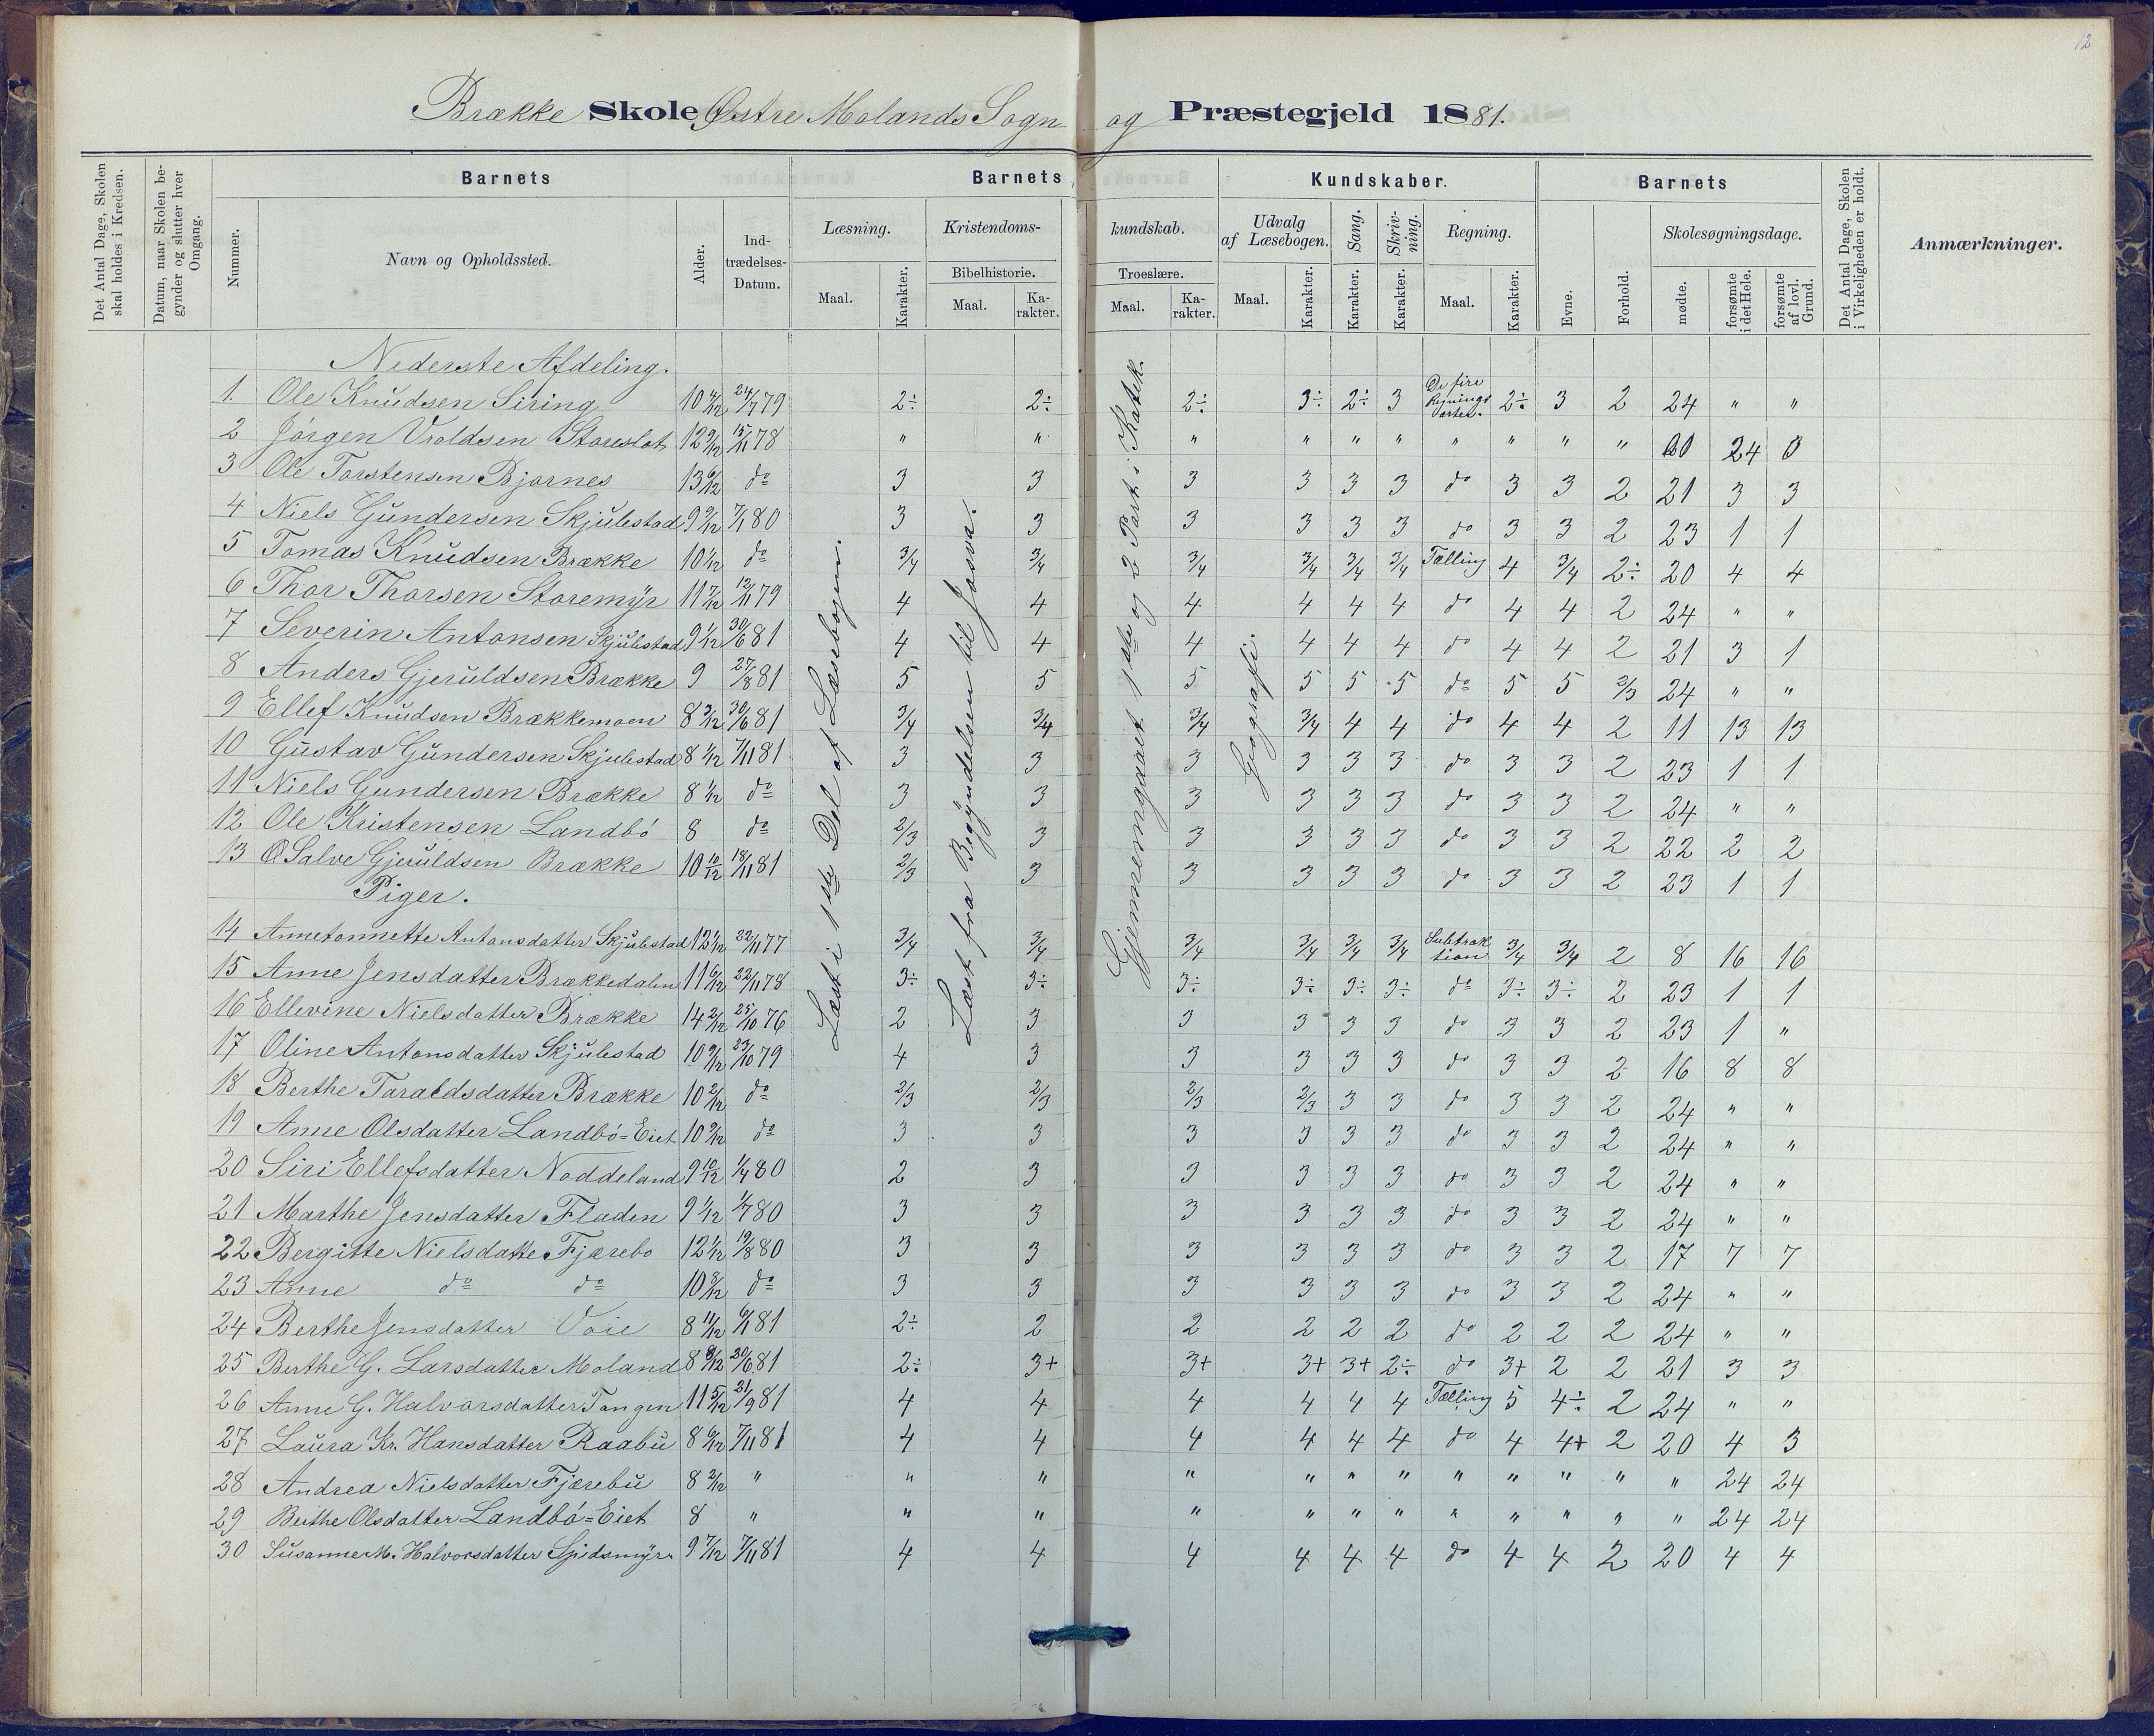 12
Brække Skole Østre Molands Sogn og Præstegjeld 1881.
Det Antal Dage, Skolen skal holdes i Kredsen.
Datum, naar Skolen begynder og slutter hver Omgang.
Barnets
Nummer.
Navn og Opholdssted.
Alder.
Ind-
trædelses-
Datum.
Barnets Kundskaber.
Læsning.
Maal.
Karakter.
Kristendoms-kundskab.
Bibelhistorie.
Maal.
Ka-
rakter.
Troeslære.
Maal.
Ka-
rakter.
Udvalg
af Læsebogen.
Maal.
Karakter.
Sang.
Karakter.
Skriv-
ning.
Karakter.
Regning.
Maal.
Karakter.
Barnets
Evne.
Forhold.
Skolesøgningsdage.
mødte.
forsømte i det Hele.
forsømte af lovl. Grund.
Det Antal Dage, Skolen i Virkeligheden er holdt.
Anmærkninger.
Læst i 1ste Del af Læsebogen.
Læst fra Begyndelsen til Josva.
Gjennemgaaet 1ste og 2 Part i Katek.
Geografi.
Nederste Afdeling.
1. Ole Knudsen Siring 10 4/12 24/7 79 2÷ 2÷ 2÷ 3÷ 2÷ 3 De fire Regningsarter. 2÷ 3 2 24 " "
2 Jörgen Vroldsen Storeslot 12 9/12 15/11 78 " " " " " " " " " " 00 24 0
3 Ole Torstensen Bjornes 13 6/12 do 3 3 3 3 3 3 do 3 3 2 21 3 3
4 Niels Gundersen Skjulestad 9 9/12 7/1 80 3 3 3 3 3 3 do 3 3 2 23 1 1
5 Tomas Knudsen Brække 10 1/12 do 3/4 3/4 3/4 3/4 3/4 3/4 Tælling 4 3/4 2÷ 20 4 4
6 Thor Thorsen Storemyr 11 7/12 12/11 79 4 4 4 4 4 4 do 4 4 2 24 " "
7 Severin Antonsen Skjulestad 9 1/12 30/6 81 4 4 4 4 4 4 do 4 4 2 21 3 1
8 Anders Gjeruldsen Brække 9 27/8 81 5 5 5 5 5 5 do 5 5 2/3 24 " "
9 Ellef Knudsen Brækkemoen 8 3/12 30/6 81 3/4 3/4 3/4 3/4 4 4 do 4 4 2 11 13 13
10 Gustav Gundersen Skjulestad 8 1/12 7/11 81 3 3 3 3 3 3 do 3 3 2 23 1 1
11 Niels Gundersen Brække 8 1/12 do 3 3 3 3 3 3 do 3 3 2 24 " "
12 Ole Kristensen Landbö 8 do 2/3 3 3 3 3 3 do 3 3 2 22 2 2
13 Salve Gjeruldsen Brække 10 10/12 18/11 81 2/3 3 3 3 3 3 do 3 3 2 23 1 1
Piger.
14 Annetonnette Antonsdatter Skjulestad 12 1/12 22/11 77 3/4 3/4 3/4 3/4 3/4 3/4 Subtraktion 3/4 3/4 2 8 16 16
15 Anne Jensdatter Brækkedalen 11 6/12 22/11 78 3÷ 3÷ 3÷ 3÷ 3÷ 3÷ do 3÷ 3÷ 2 23 1 1
16 Ellevine Nielsdatter Brække 14 2/12 25/10 76 2 3 3 3 3 3 do 3 3 2 23 1 "
17 Oline Antonsdatter Skjulestad 10 9/12 23/10 79 4 3 3 3 3 3 do 3 3 2 16 8 8
18 Berthe Taraldsdatter Brække 10 2/12 do 2/3 2/3 2/3 2/3 3 3 do 3 3 2 24 " "
19 Anne Olsdatter Landbö=Eiet 10 9/12 do 3 3 3 3 3 3 do 3 3 2 24 " "
20 Siri Ellefsdatter Noddeland 9 10/12 1/4 80 2 3 3 3 3 3 do 3 3 2 24 " "
21 Marthe Jensdatter Fladen 9 1/12 1/7 80 3 3 3 3 3 3 do 3 3 2 24 " "
22 Bergitte Nielsdatte Fjærebo 12 1/12 19/8 80 3 3 3 3 3 3 do 3 3 2 17 7 7
23 Anne do do 10 8/12 do 3 3 3 3 3 3 do 3 3 2 24 " "
24 Berthe Jensdatter Voie 8 11/12 6/1 81 2÷ 2 2 2 2 2 do 2 2 2 24 " "
25 Berthe G. Larsdatter Moland 8 8/12 30/6 81 2÷ 3+ 3+ 3+ 3+ 2÷ do 3+ 2 2 21 3 3
26 Anne G. Halvorsdatter Tangen 11 5/12 21/9 81 4 4 4 4 4 4 Tælling 5 4÷ 2 24 " "
27 Laura Kr. Hansdatter Raabu 8 6/12 7/11 81 4 4 4 4 4 4 do 4 4+ 2 20 4 3
28 Andrea Nielsdatter Fjærebu 8 2/12 " " " " " " " " " " " " 24 24
29 Berthe Olsdatter Landbö=Eiet 8 " " " " " " " " " " " " 24 24
30 Susanne M. Halvorsdatter Spidsmyr 9 7/12 7/11 81 4 4 4 4 4 4 do 4 4 2 20 4 4